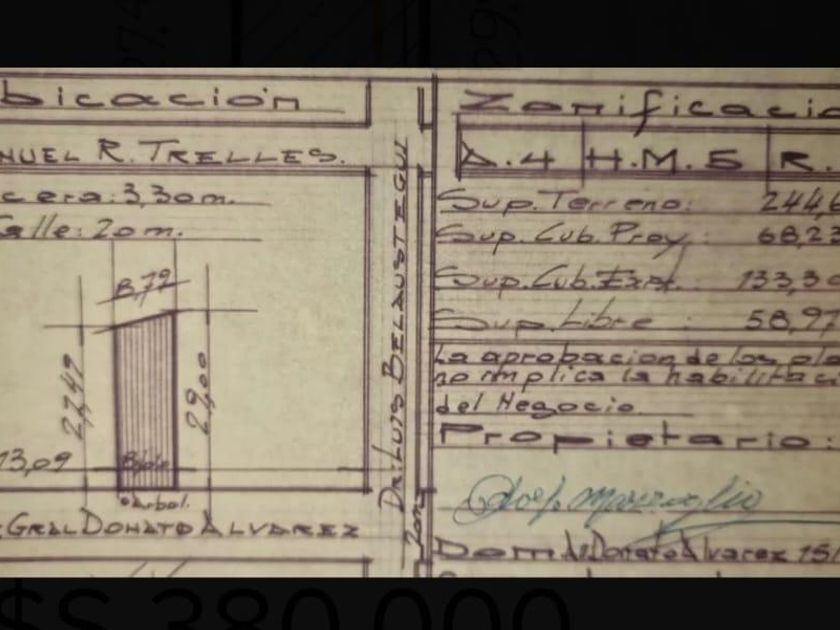 bicación
NUEL R. TRELLES.
cera: 3,30 m.
alle: 20 m.
8,79
27,49
29,00
13,09
Arbol.
GRAL DONATO ALVAREZ
Dr. LUIS BELAUSTEGUI
20m
Zonificació
A.4 H.M.5 R.
Sup. Terreno: 244,6
Sup. Cub. Proy.: 68,23
Sup. Cub. Exist. 133,3
Sup. Libre : 58,97
La aprobacion de los pla
no implica la habilitac
del Negocio.
Propietario:
Dom. Donato Alvarez 151
$S 380.000